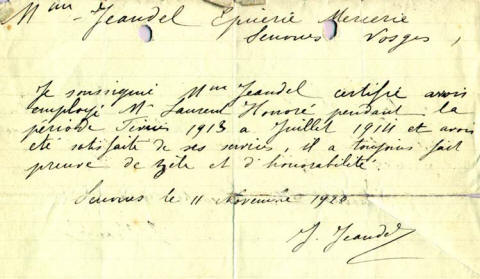 Mme Jeandel Epicerie Mercerie
Senones Vosges,
Je soussigné Mme Jeandel certifie avoir
employé Mr Laurent Honoré pendant la
période Février 1913 a Juillet 1914 et avoir
été satisfaite de ses services, il a toujours fait
preuve de zèle et d'honorabilité.
Senones le 11 Novembre 1928
J. Jeandel